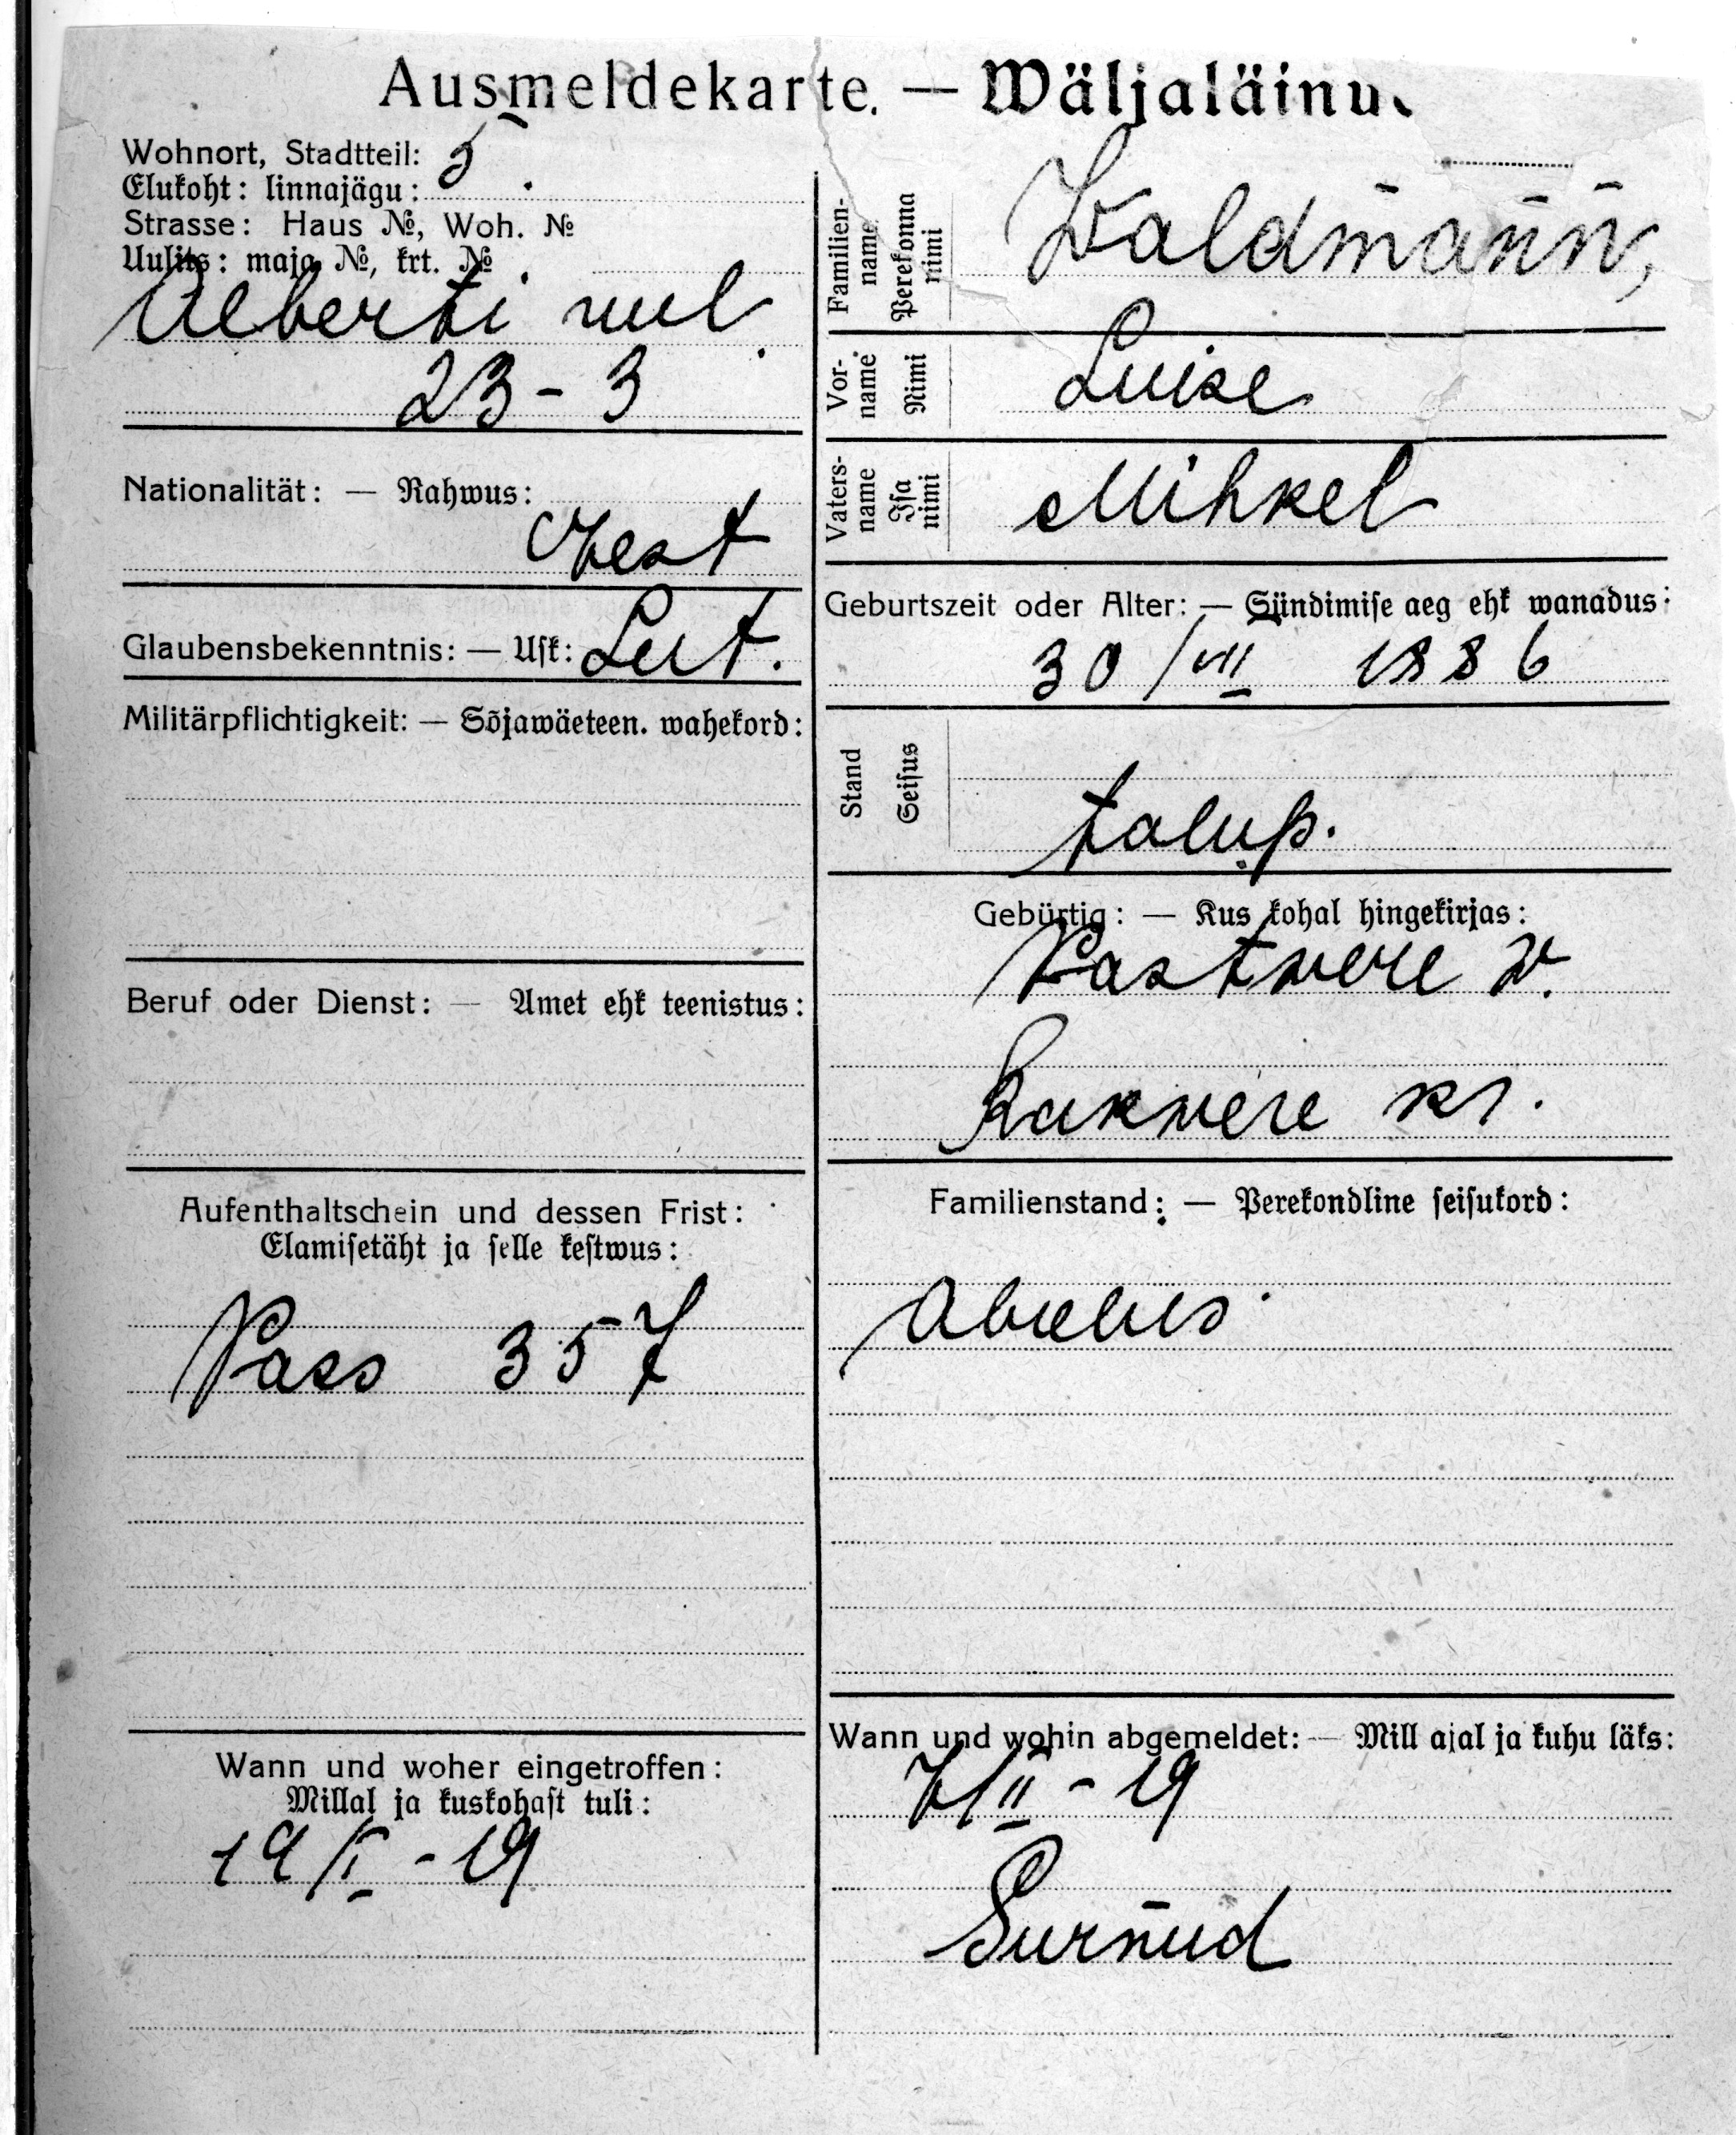 Ausmeldekarte. — Wäljaläinu
Wohnort, Stadtteil: 5
Elukoht: linnajägu:
Strasse: Haus №, Woh. №
Uulits: maja №, krt. №
uul.
23 - 3
Nationalität: — Rahwus:
Eest
Glaubensbekenntnis: — Usk: Lut.
Militärpflichtigkeit: — Sõjawäeteen. wahekord:
Beruf oder Dienst: — Amet ehk teenistus:
Aufenthaltschein und dessen Frist:
Elamisetäht ja selle kestwus:
Pass 357
Wann und woher eingetroffen:
Millal ja kuskohast tuli:
19/I - 19
Familien-name Perekonna nimi Waldmann,
Vor-name Nimi Luise
Vaters-name Isa nimi Mihkel
Geburtszeit oder Alter: — Sündimise aeg ehk wanadus:
30/VII 1886
Stand Seisus
talup.
Gebürtig: — Kus kohal hingekirjas:
w.
Rakwere kr.
Familienstand: — Perekondline seisukord:
Abielus
Wann und wohin abgemeldet: — Mill ajal ja kuhu läks:
7/II - 19
Surnud